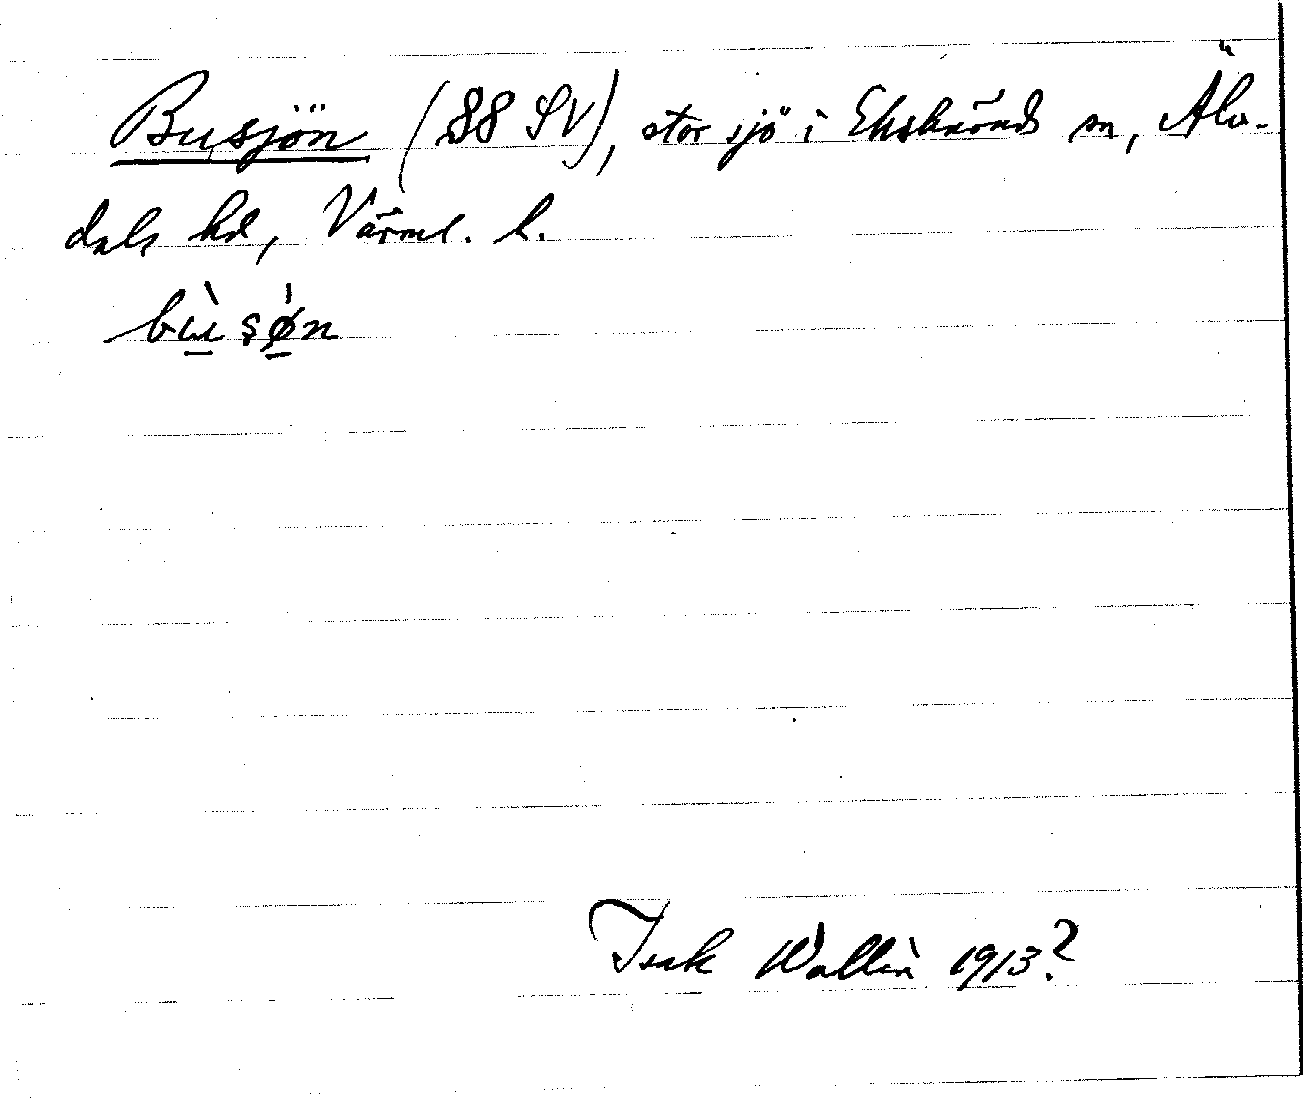 Busjön (88 SV), stor sjö i Ekshärads sn, Älv-
dals hd, Värml. l.
bùsø̀n
Isak Wallin 1913?